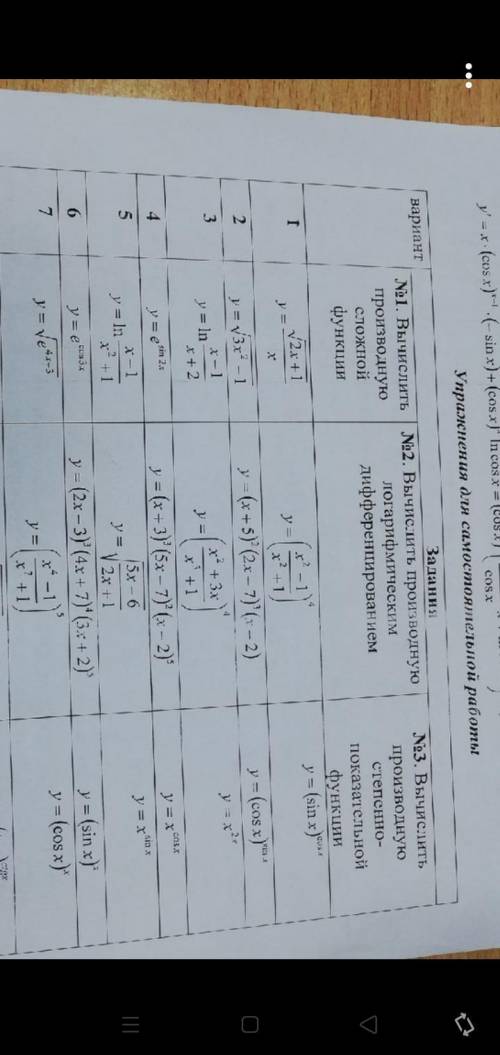 y' = x · (cos x)ˣ⁻¹ · (− sin x) + (cos x)ˣ ln cos x = (cos x)
cos x
Упражнения для самостоятельной работы
вариант
Задания
№1. Вычислить производную сложной функции
№2. Вычислить производную логарифмическим дифференцированием
№3. Вычислить производную степенно-показательной функции
1
y = √(2x+1) / x
y = ((x² − 1)/(x² + 1))⁴
y = (sin x)^(cos x)
2
y = √(3x² − 1)
y = (x + 5)²(2x − 7)³(x − 2)
y = (cos x)^(sin x)
3
y = ln (x − 1)/(x + 2)
y = ((x² + 3x)/(x³ + 1))⁴
y = x^(2x)
4
y = e^(sin 2x)
y = (x + 3)³(5x − 7)²(x − 2)⁵
y = x^(cos x)
5
y = ln (x − 1)/(x² + 1)
y = √((5x − 6)/(2x + 1))
y = x^(sin x)
6
y = e^(cos 3x)
y = (2x − 3)³(4x + 7)⁴(3x + 2)⁵
y = (sin x)ˣ
7
y = √(e^(4x−3))
y = ((x⁴ − 1)/(x⁷ + 1))⁵
y = (cos x)ˣ